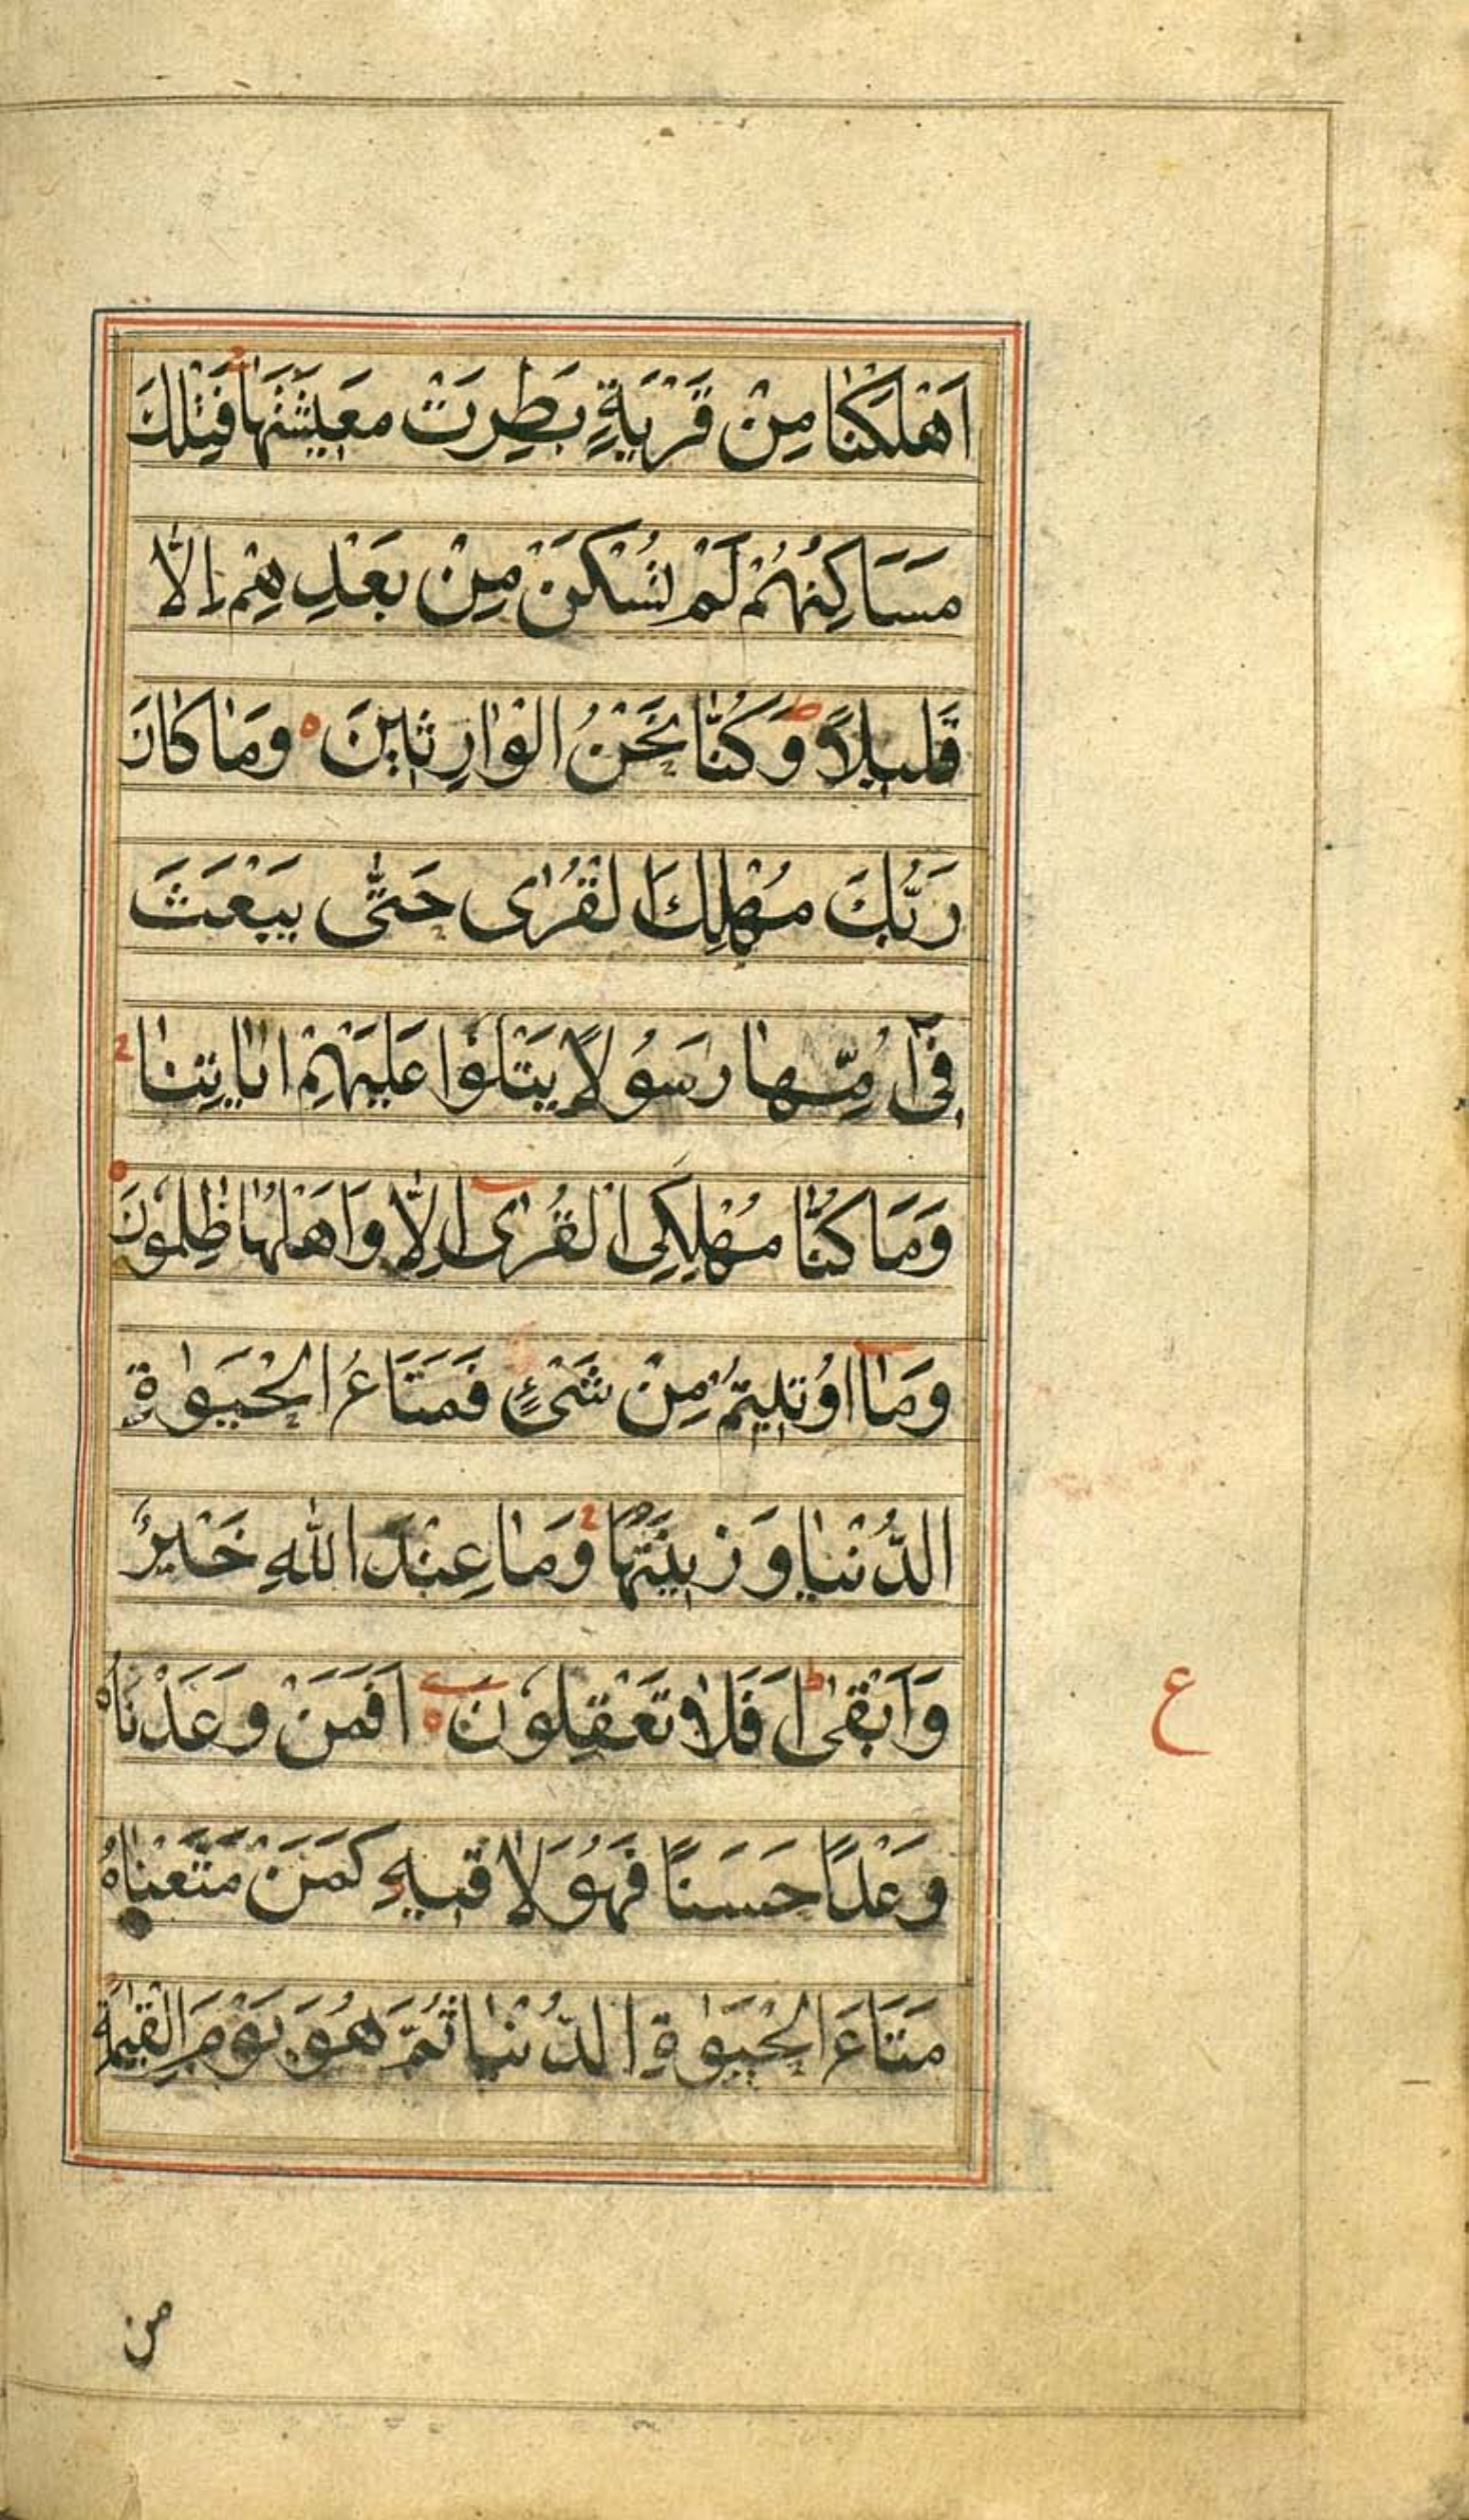 اَهْلَكْنَا مِنْ قَرْيَةٍ بَطِرَتْ مَعِيْشَتَهَا ۚ فَتِلْكَ
مَسَاكِنُهُمْ لَمْ تُسْكَنْ مِنْ بَعْدِهِمْ اِلَّا
قَلِيلاً ط وَكُنَّا نَحْنُ الْوَارِثِينَ ه وَمَا كَانَ
رَبُّكَ مُهْلِكَ الْقُرٰى حَتّٰى يَبْعَثَ
فِىٓ اُمِّهَا رَسُولاً يَتْلُوْا عَلَيْهِمْ اٰيَاتِنَا ۚ
وَمَا كُنَّا مُهْلِكِى الْقُرٰٓى اِلَّا وَاَهْلُهَا ظٰلِمُوْنَ ه
وَمَآ اُوْتِيتُمْ مِنْ شَىْءٍ فَمَتَاعُ الْحَيٰوةِ
الدُّنْيَا وَزِينَتُهَا ۚ وَمَا عِنْدَ اللّٰهِ خَيْرٌ
وَاَبْقٰى ط اَفَلَا تَعْقِلُوْنَ ه اَفَمَنْ وَعَدْنَاهُ
ع
وَعْدًا حَسَنًا فَهُوَ لَاقِيهِ كَمَنْ مَتَّعْنَاهُ
مَتَاعَ الْحَيٰوةِ الدُّنْيَا ثُمَّ هُوَ يَوْمَ الْقِيٰمَةِ
من